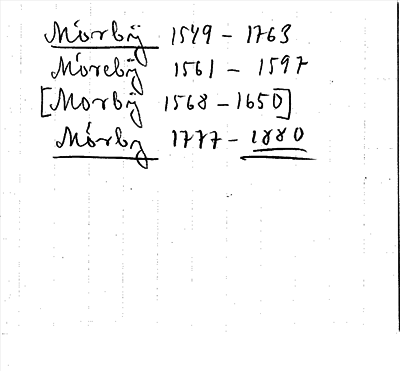 Mórbÿ 1549 – 1763
Mórebÿ 1561 – 1597
[Morbÿ 1568 – 1650]
Mórby 1777 – 1880